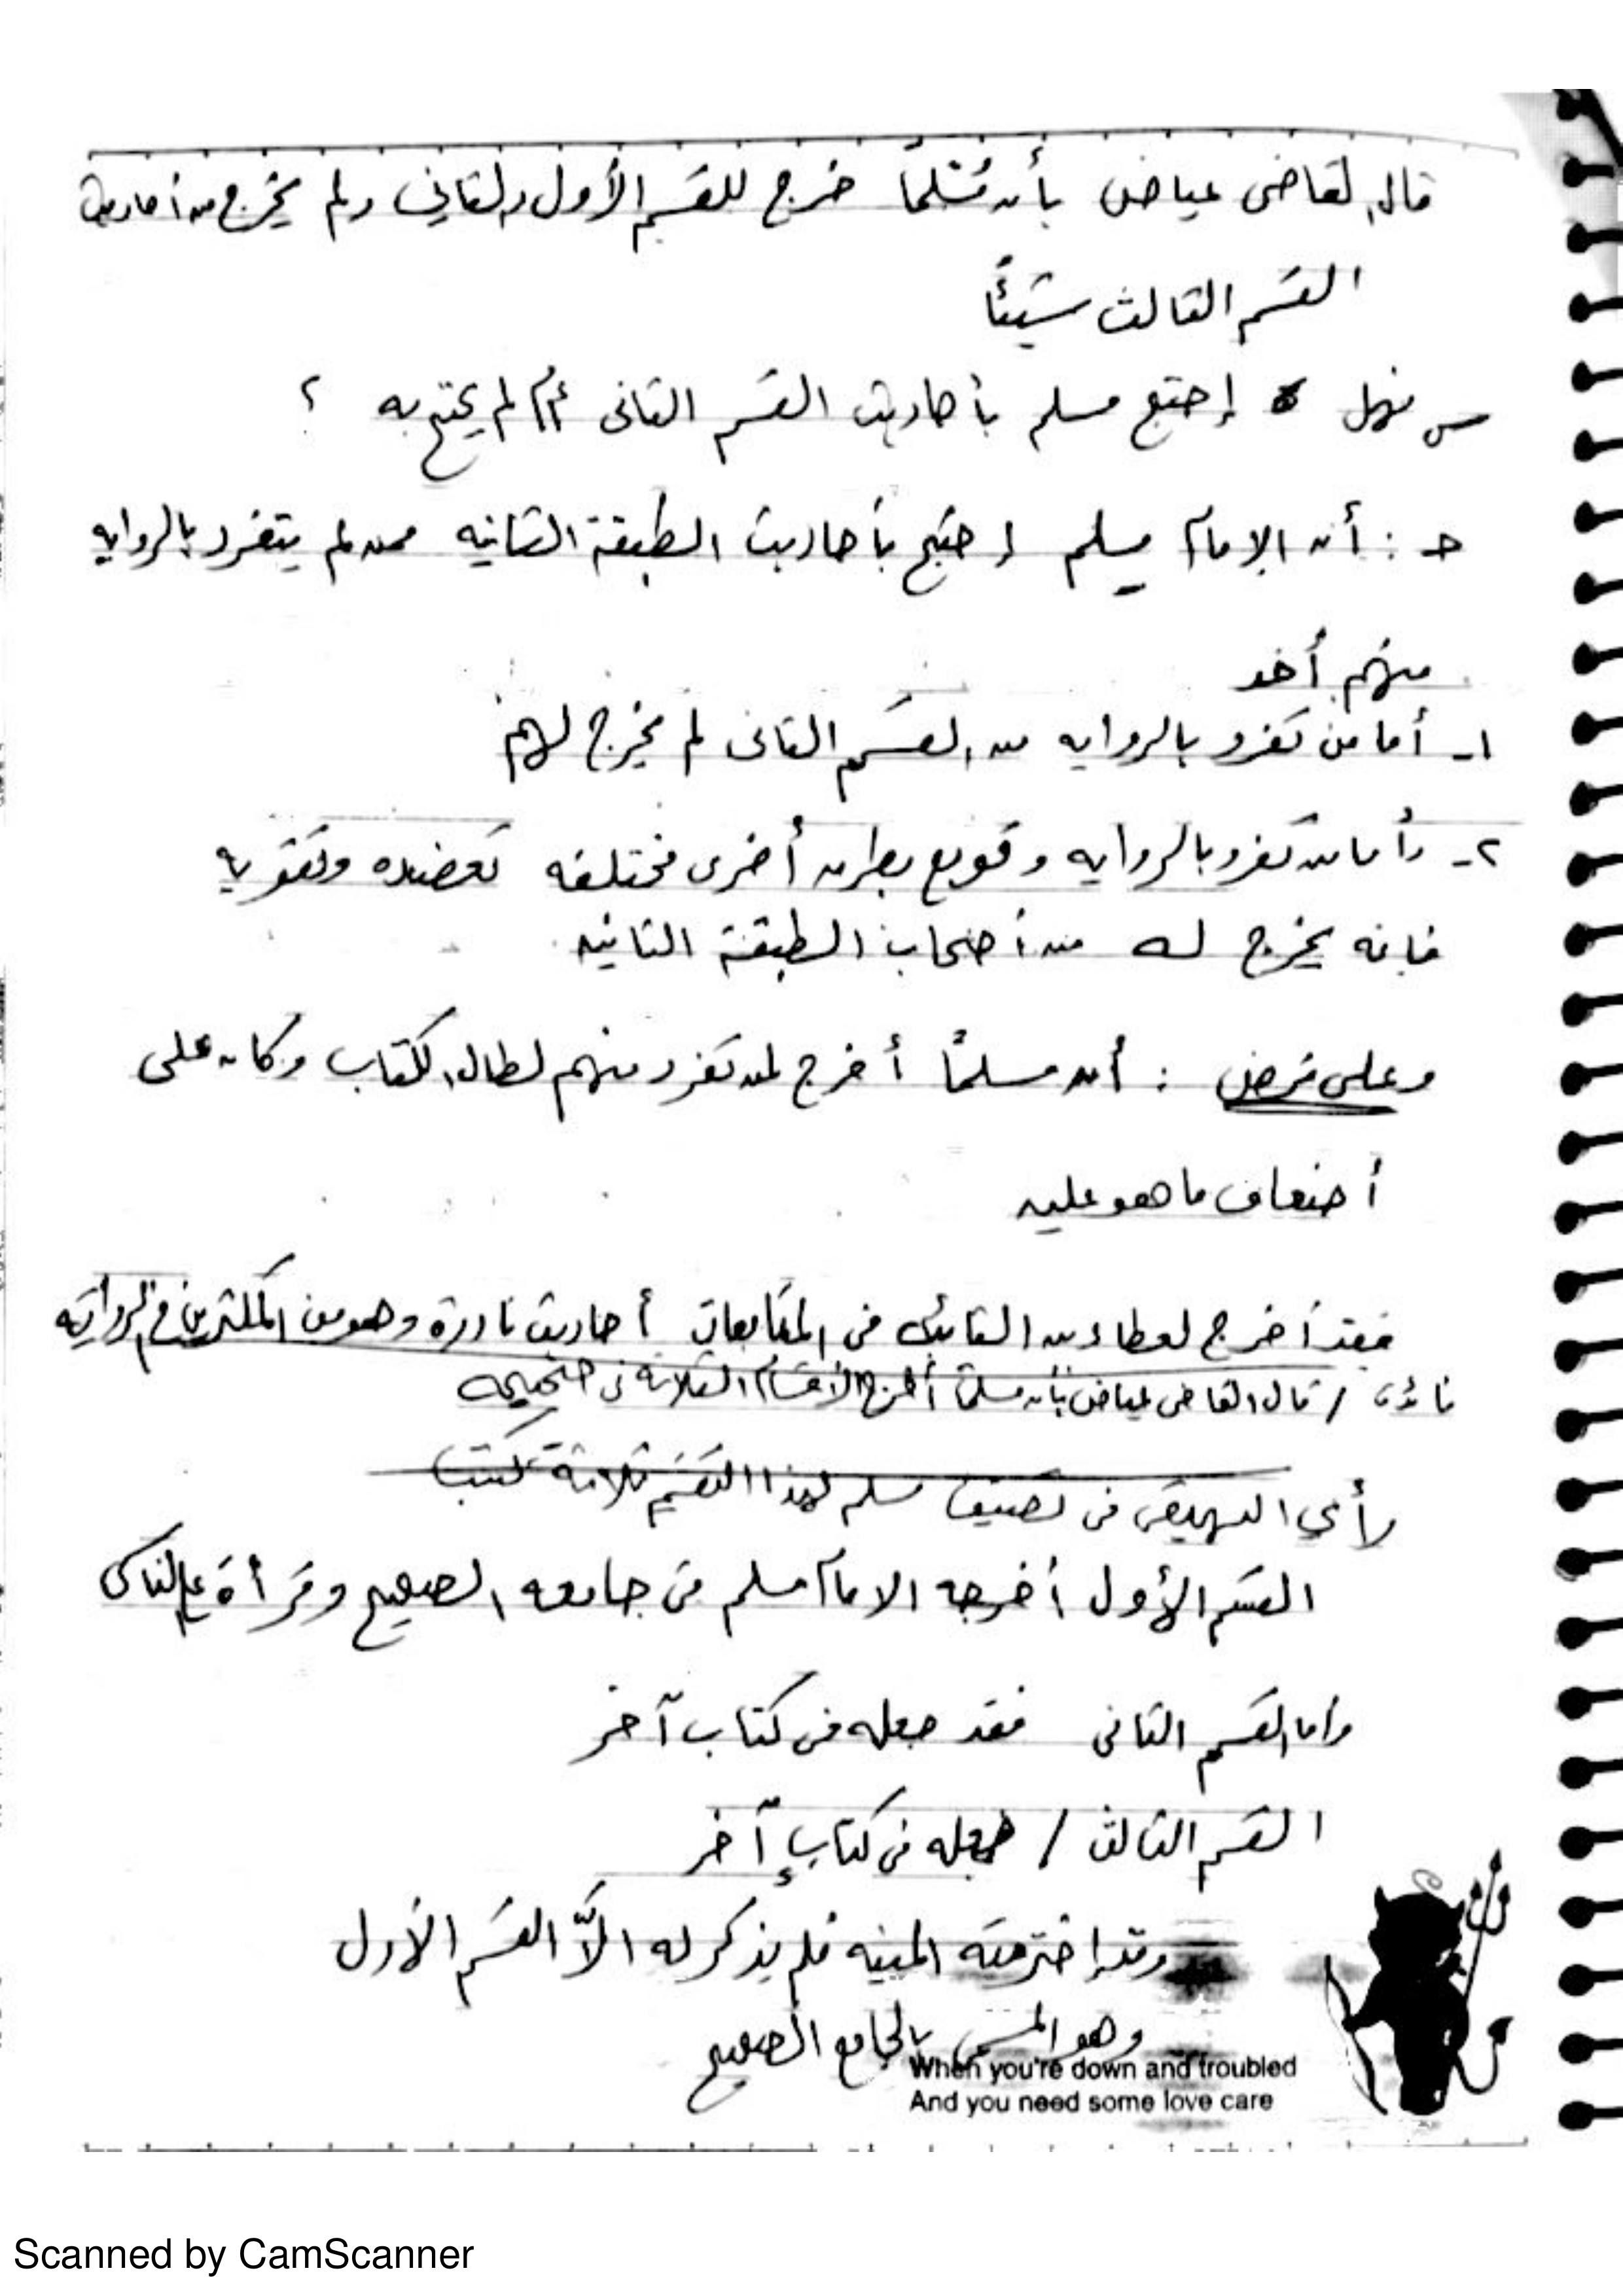 قال القاضى عياض بأن مُسْلماً خرج للقسم الأول والثاني ولم يخرج من أحاديث
القسم الثالث شيئاً
س فهل إحتج مسلم بأحاديث القسم الثانى أم لم يحتج به ؟
حـ : أن الإمام مسلم إحتج بأحاديث الطبقة الثانيه ممن لم يتفرد بالروايه
منهم أحد
١ـ أما من تفرد بالروايه من القسم الثانى لم يخرج لهم
٢ـ وأما من تفرد بالروايه وتوبع بطرق أخرى مختلفه تعضده وتقويه
فانه يخرج له من أصحاب الطبقة الثانيه
وعلى فرض : أن مسلماً أخرج لمن تفرد منهم لطال الكتاب وكان على
أضعاف ما هو عليه
فقد أخرج لعطاء بن السائب فى المتابعات أحاديث نادرة وهو من المكثرين في الروايه
فائده / قال القاضى عياض بأن مسلماً أخرج الأقسام الثلاثة فى صحيحه
رأي البهيقى فى تصنيف مسلم لهذا التقسيم ثلاثة كتب
القسم الأول أخرجه الامام مسلم فى جامعه الصحيح وقرأة على الناس
وأما القسم الثانى فقد جعله فى كتاب آخر
القسم الثالث / جعله فى كتابٍ آخر
وقد إخترمته المنيه فلم يذكر له الاَّ القسم الأول
وهو المسمى بالجامع الصحيح
When you're down and troubled
And you need some love care
Scanned by CamScanner